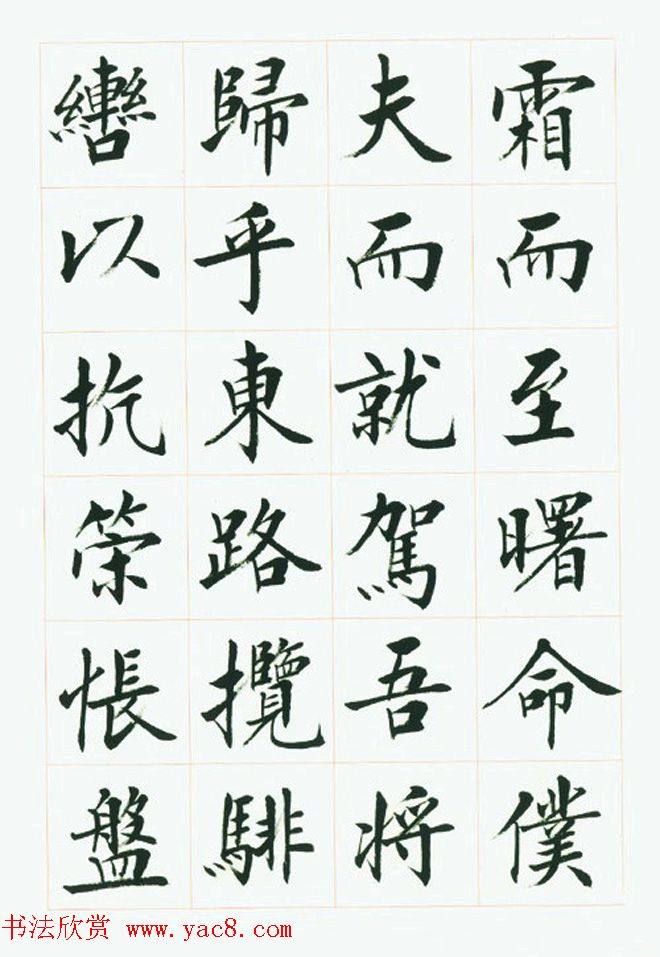 霜而至曙命僕
夫而就駕吾将
歸乎東路攬騑
轡以抗策悵盤
书法欣赏 www.yac8.com